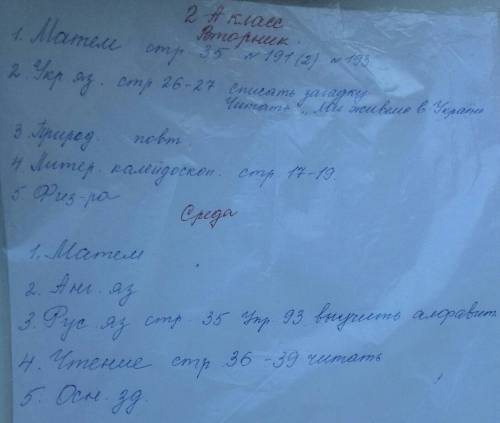 2 А класс
Вторник.
1. Матем стр 35 №191(2) №193
2. Укр яз. стр 26-27 списать загадку
Читать „Ми живемо в Україні
3. Природ. повт
4. Литер. калейдоскоп. стр 17-19.
5. Физ-ра
Среда
1. Матем
2. Анг. яз
3. Рус. яз стр. 35 Упр. 93 выучить алфавит.
4. Чтение стр 36-39 читать
5. Осн. зд.